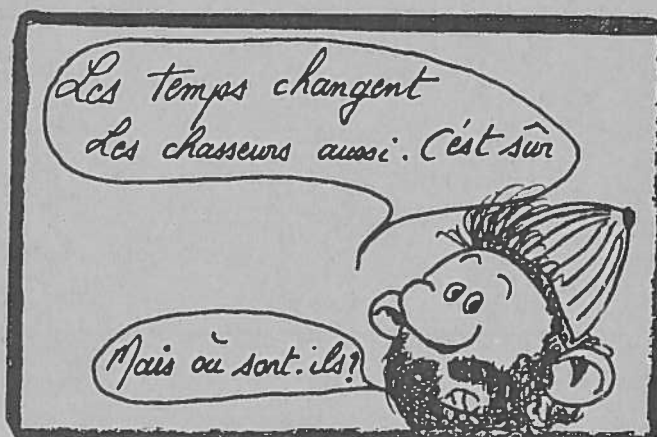 Les temps changent
Les chasseurs aussi. C'est sûr
Mais où sont.ils?